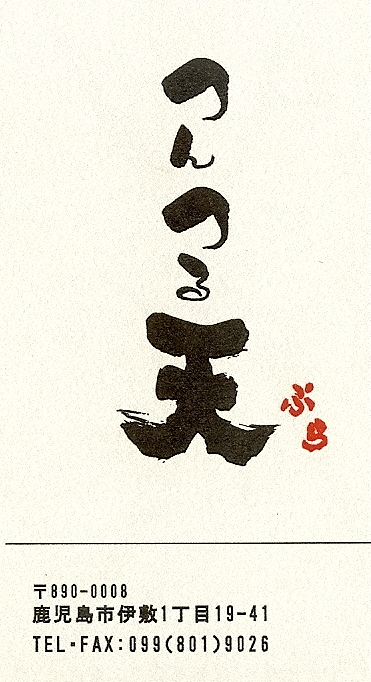 つんつる天
ぷら
〒890-0008
鹿児島市伊敷1丁目19-41
TEL・FAX:099(801)9026